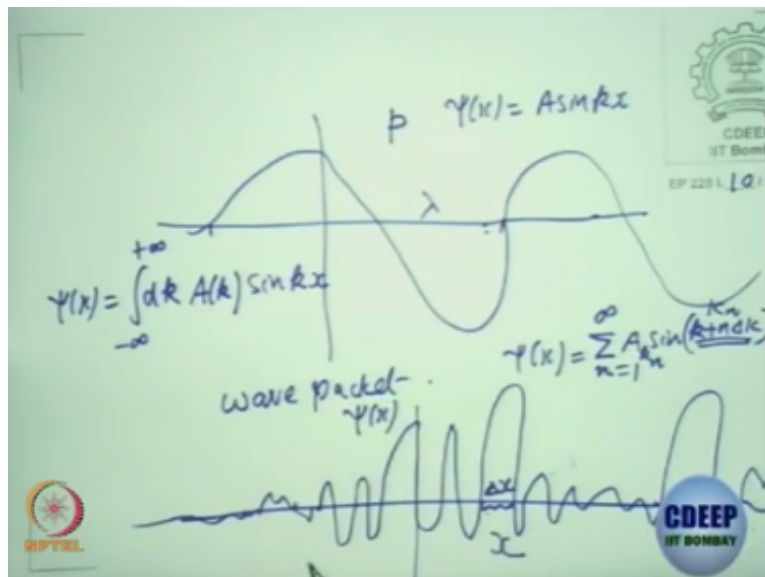 CDEEP
IIT Bombay
EP 228 L 10 /
p ψ(x) = A sin kx
λ
ψ(x) = ∫_{-∞}^{+∞} dk A(k) sin kx
ψ(x) = ∑_{n=1}^{∞} A_{k_n} sin(k+ndk)
k_n
wave packet
ψ(x)
Δx
x
NPTEL
CDEEP
IIT BOMBAY